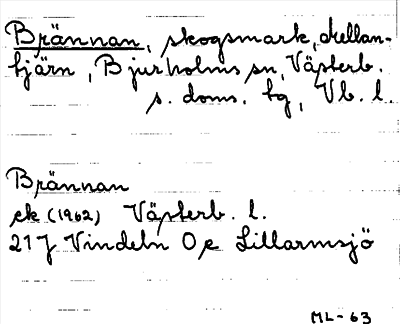 Brännan, skogsmark, Mellan-
tjärn, Bjurholms sn, Västerb.
s. doms. tg, Vb. l.
Brännan
ek (1962) Västerb. l.
21J Vindeln 0c Lillarmsjö
ML-63